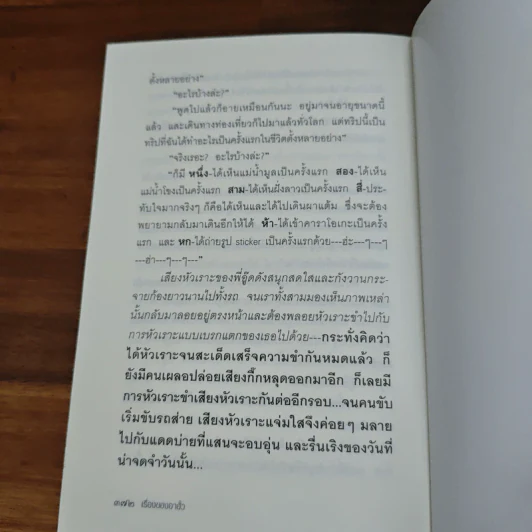 ตั้งหลายอย่าง”
“อะไรบ้างล่ะ?”
“พูดไปแล้วก็อายเหมือนกันนะ อยู่มาจนอายุขนาดนี้
แล้ว และเดินทางท่องเที่ยวก็ไปมาแล้วทั่วโลก แต่ทริปนี้เป็น
ทริปที่ฉันได้ทำอะไรเป็นครั้งแรกในชีวิตตั้งหลายอย่าง”
“จริงเรอะ? อะไรบ้างล่ะ?”
“ก็มี หนึ่ง-ได้เห็นแม่น้ำมูลเป็นครั้งแรก สอง-ได้เห็น
แม่น้ำโขงเป็นครั้งแรก สาม-ได้เห็นฝั่งลาวเป็นครั้งแรก สี่-ประ
ทับใจมากจริงๆ ก็คือได้เห็นและได้ไปเดินผาแต้ม ซึ่งจะต้อง
พยายามกลับมาเดินอีกให้ได้ ห้า-ได้เข้าคาราโอเกะเป็นครั้ง
แรก และ หก-ได้ถ่ายรูป sticker เป็นครั้งแรกด้วย---ฮ่ะ---ๆ---ๆ
---ฮ่า---ๆ---ๆ---”
เสียงหัวเราะของพี่อู๊ดดังสนุกสดใสและกังวานกระ-
จายก้องยาวนานไปทั้งรถ จนเราทั้งสามมองเห็นภาพเหล่า
นั้นกลับมาลอยอยู่ตรงหน้าและต้องพลอยหัวเราะขำไปกับ
การหัวเราะแบบเบรกแตกของเธอไปด้วย---กระทั่งคิดว่า
ได้หัวเราะจนสะเด็ดเสร็จความขำกันหมดแล้ว ก็
ยังมีคนเผลอปล่อยเสียงกิ๊กหลุดออกมาอีก ก็เลยมี
การหัวเราะขำเสียงหัวเราะกันต่ออีกรอบ...จนคนขับ
เริ่มขับรถส่าย เสียงหัวเราะแจ่มใสจึงค่อยๆ มลาย
ไปกับแดดบ่ายที่แสนจะอบอุ่น และรื่นเริงของวันที่
น่าจดจำวันนั้น...
๓๗๒ เรื่องของอาฮั้ว